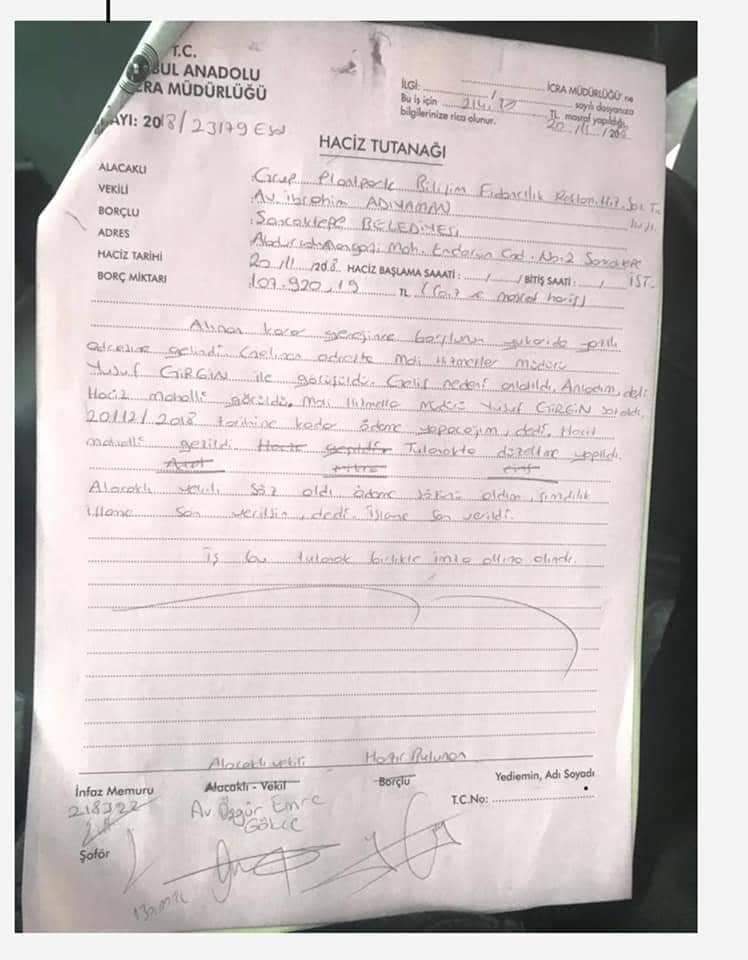 T.C.
BUL ANADOLU
CRA MÜDÜRLÜĞÜ
AYI: 2018/23179 Esa
İLGİ: / İCRA MÜDÜRLÜĞÜ'ne
sayılı dosyanıza
Bu iş için TL masraf yapıldığı,
bilgilerinize rica olunur. 20/11/2018
HACİZ TUTANAĞI
ALACAKLI Grup Bilişim Reklam
VEKİLİ Av. İbrahim ADIYAMAN
BORÇLU Sancaktepe BELEDİYESİ
ADRES Abdurrahmangazi Mah. Enderun Cad. No:2 Sancaktepe
İST.
HACİZ TARİHİ 20/11/2018 HACİZ BAŞLAMA SAAATİ : / / BİTİŞ SAATİ : /
BORÇ MİKTARI 107.920,19 TL ( ve masraf hariç)
Alınan karar gereğince borçlunun yukarıda yazılı
adresine gelindi. Gelinen adreste Mali Hizmetler müdürü
Yusuf GİRGİN ile görüşüldü. Geliş nedeni anlatıldı. Anladım, dedi.
Haciz mahalli görüldü. Mali Hizmetler Müdürü Yusuf GİRGİN söz aldı.
20/12/2018 tarihine kadar ödeme yapacağım, dedi. Haciz
mahalli gezildi. Tutanakta düzeltme yapıldı.
Alacaklı vekili söz aldı ödeme sözünü aldım, şimdilik
işleme son verilsin, dedi. İşleme son verildi.
İş bu tutanak birlikte imza altına alındı.
Alacaklı vekili Hazır Bulunan
İnfaz Memuru Alacaklı - Vekil Borçlu Yediemin, Adı Soyadı
218322 Av Özgür Emre
GÖKÇE
T.C.No:
Şoför